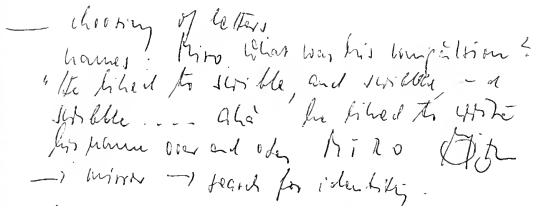 — choosing of letters
names: Miro. What was his compulsion?
"He liked to scribble, and scribble, and
scribble .... aha he liked to write
his name over and over MIRO
→ mirror → search for identity.